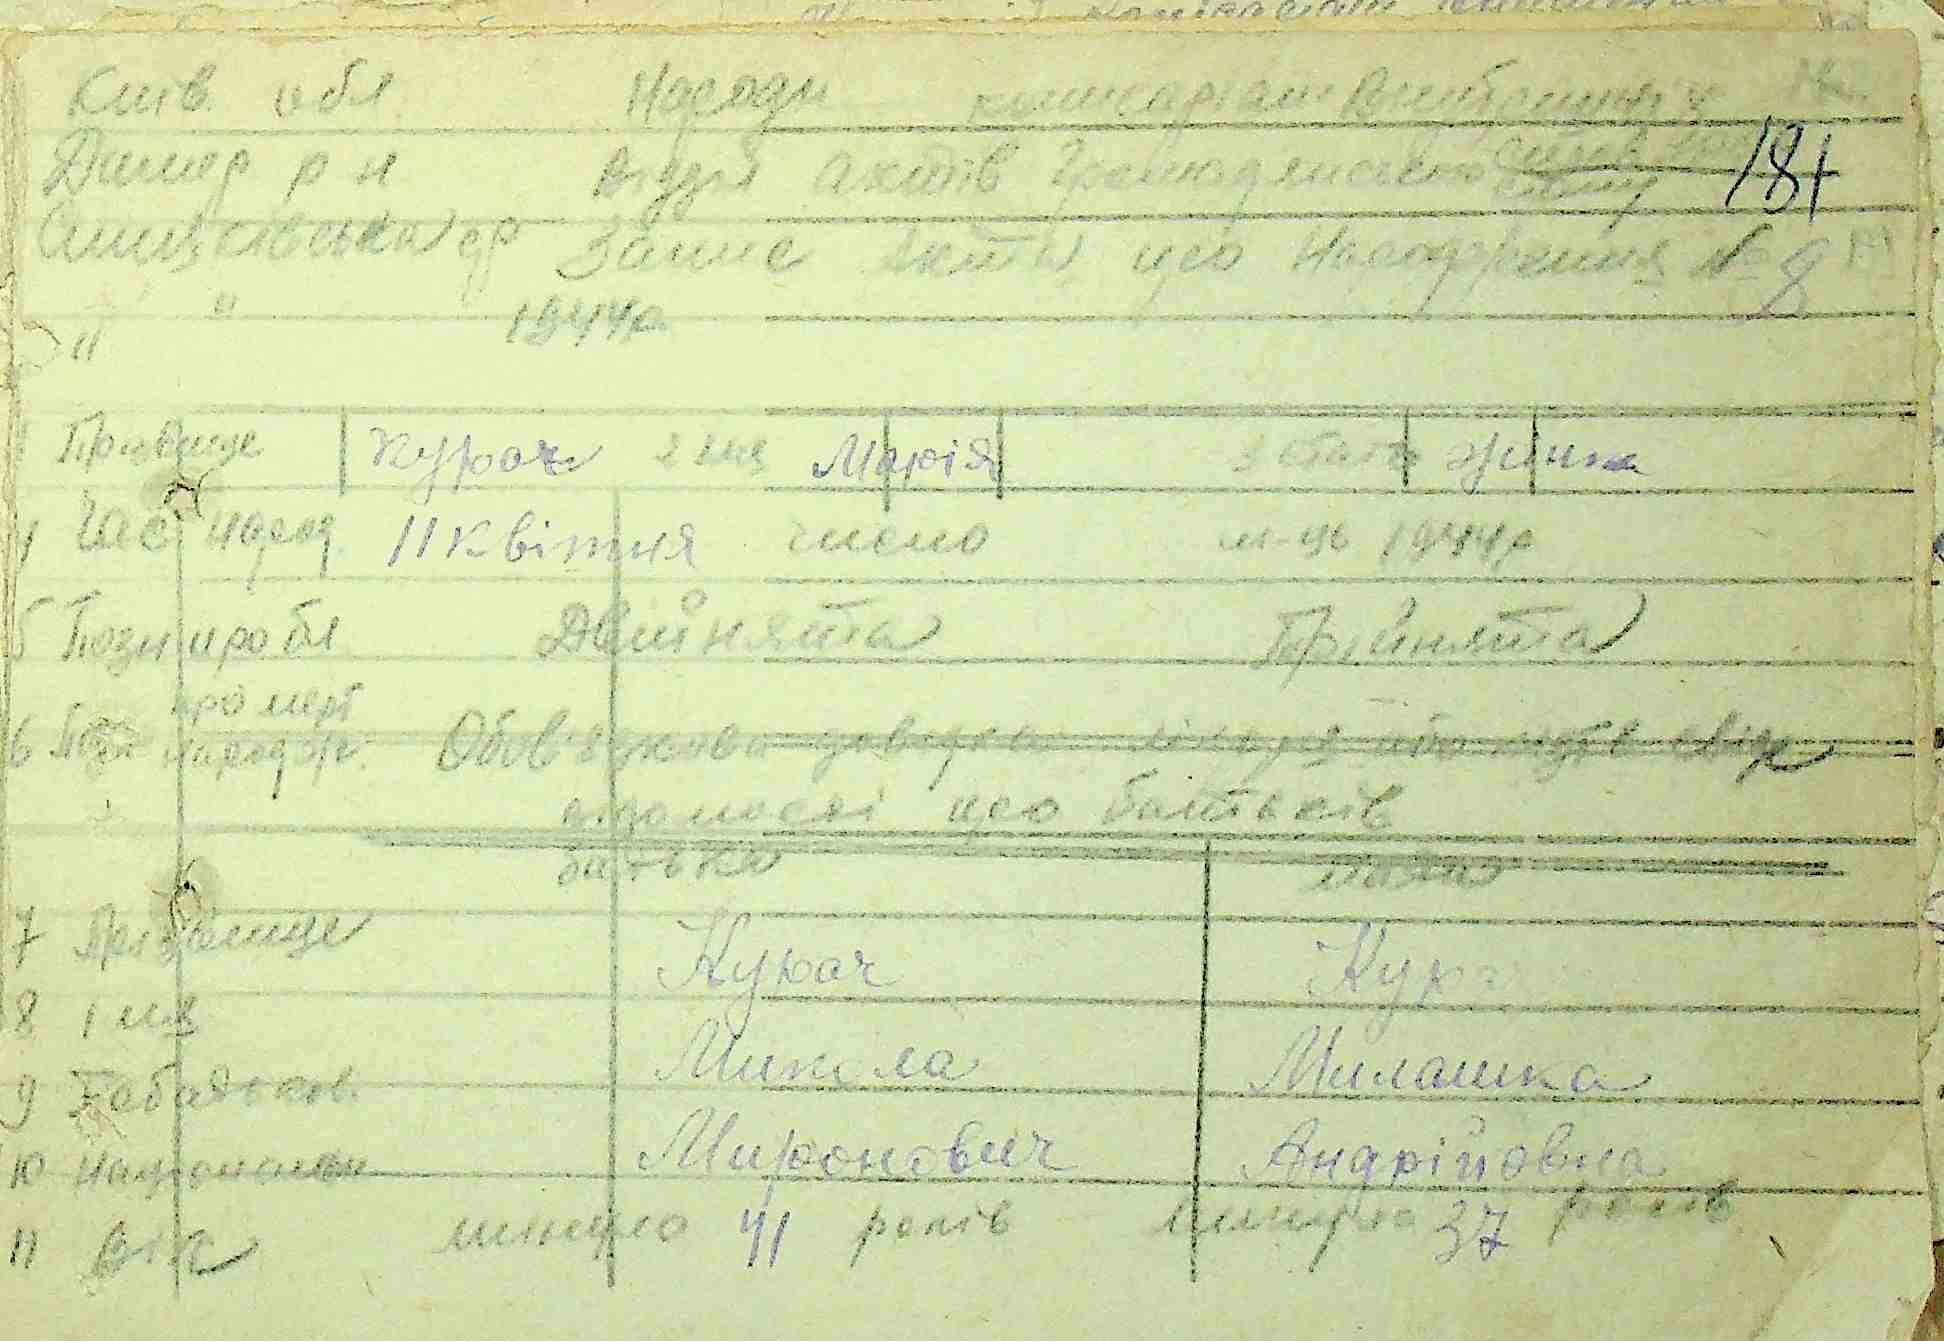 Київ. обл. Народн комісаріат Внутрішніх
Димер р н Відділ Актів Громадянського стану 181
с/р Запис Акта про Народження № 8
" " 1944р.
"
1 Прізвище Курач 2 імя Марія 3 Стать жінка
4 Час народ. 11 квітня число м-ць 1944р
5 Позн про бл Двійнята Трійнята
6 Позн про мерт народж. Обов'язкова довідка лікаря або
відомості про батьків
батько мати
7 Прізвище Курач Кура
8 імя Микола Милашка
9 Побатьков. Миронович Андрійовна
10 Національн
11 Вік минуло 41 років минуло 37 років